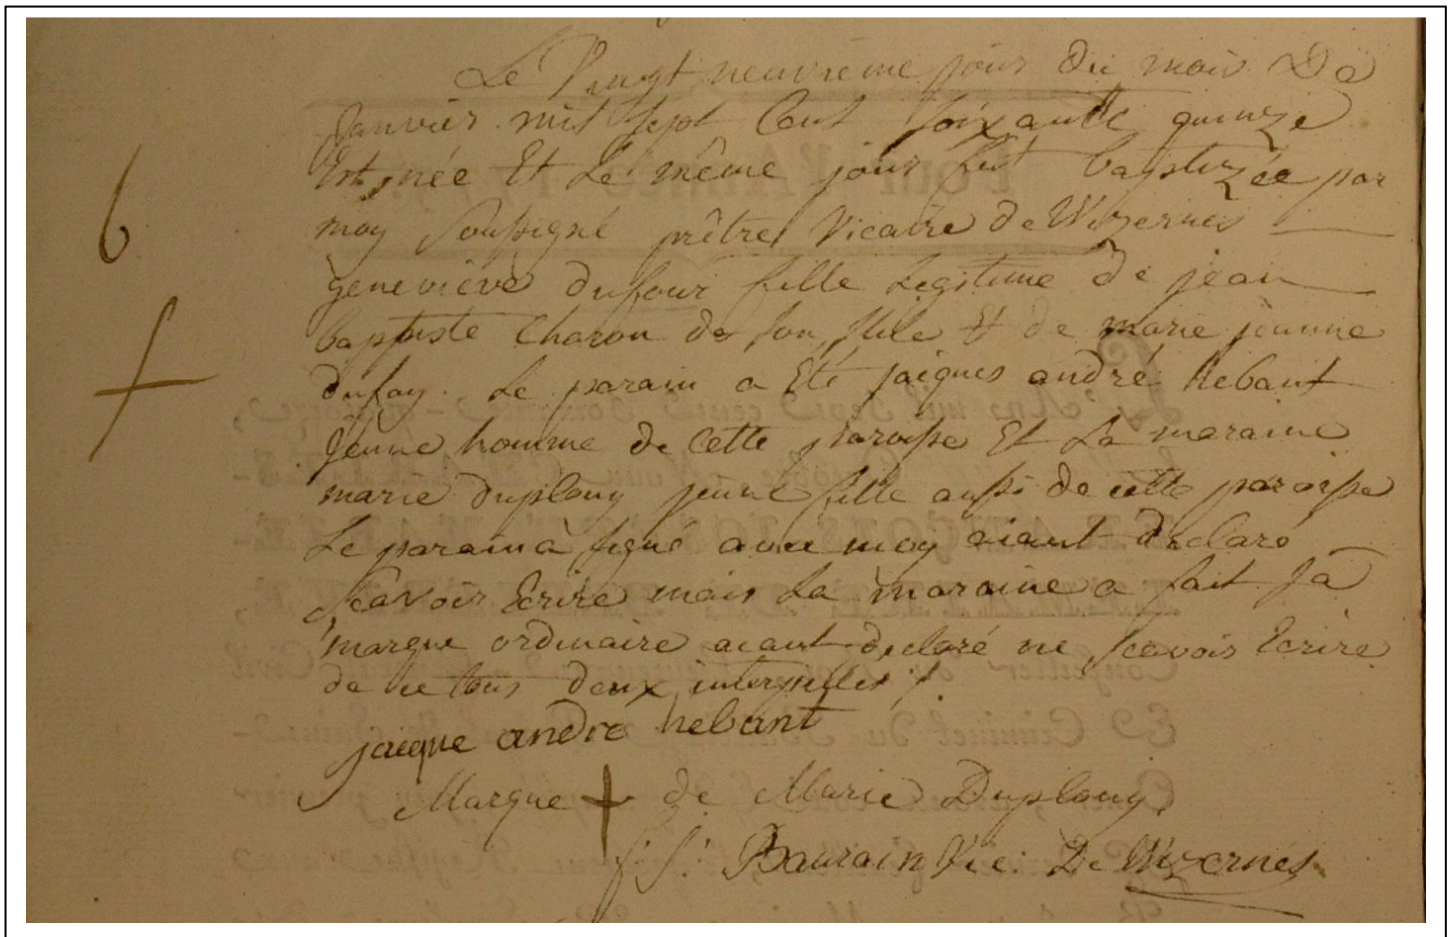 Le Vingt neuvieme jour du mois De
Janvier mil sept Cent soixante quinze
Est née Et Le même jour fut baptizée par
moy soussigné prêtre Vicaire de Wizernes
geneviéve dufour fille Legitime de jean
baptiste Charon de son stile Et de marie jeanne
dufay. Le parain a Eté jacques andré hebant
jeune homme de Cette paroisse Et La maraine
marie duplouy jeune fille aussi de cette paroisse
Le parain a signé avec moy aiant declaré
sçavoir Ecrire mais La maraine a fait sa
marque ordinaire aiant declaré ne sçavoir Ecrire
de ce tous deux interpellés
6
jacque andré hebant
Marque + de Marie Duplouy
Baurain Vic. De Wizernes